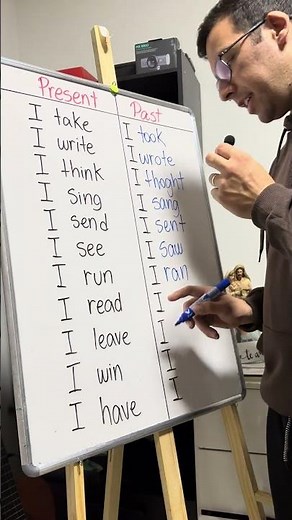 Present Past
I take I took
I write I wrote
I think I thoght
I sing I sang
I send I sent
I see I saw
I run I ran
I read I
I leave I
I win I
I have I